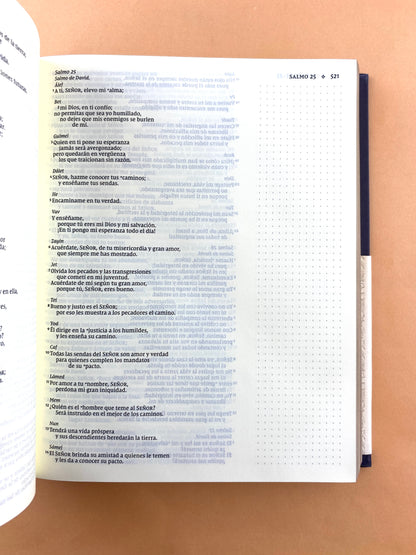 SALMO 25 ❖ 521
Salmo 25
Salmo de David.
Álef
A ti, SEÑOR, elevo mi alma;
Bet
mi Dios, en ti confío;
no permitas que sea yo humillado,
no dejes que mis enemigos se burlen
de mí.
Guímel
Quien en ti pone su esperanza
jamás será avergonzado;
pero quedarán en vergüenza
los que traicionan sin razón.
Dálet
SEÑOR, hazme conocer tus caminos;
y enséñame tus sendas.
He
Encamíname en tu verdad.
Vav
Y enséñame,
porque tú eres mi Dios y mi salvación.
¡En ti pongo mi esperanza todo el día!
Zayin
Acuérdate, SEÑOR, de tu misericordia y gran amor,
que siempre me has mostrado.
Jet
Olvida los pecados y las transgresiones
que cometí en mi juventud.
Acuérdate de mí según tu gran amor,
porque tú, SEÑOR, eres bueno.
Tet
Bueno y justo es el SEÑOR;
por eso les muestra a los pecadores el camino.
Yod
Él dirige en la justicia a los humildes,
y les enseña su camino.
Caf
Todas las sendas del SEÑOR son amor y verdad
para quienes cumplen los mandatos
de su pacto.
Lámed
Por amor a tu nombre, SEÑOR,
perdona mi gran iniquidad.
Mem
¿Quién es el hombre que teme al SEÑOR?
Será instruido en el mejor de los caminos.
Nun
Tendrá una vida próspera
y sus descendientes heredarán la tierra.
Sámej
El SEÑOR brinda su amistad a quienes le temen
y les da a conocer su pacto.